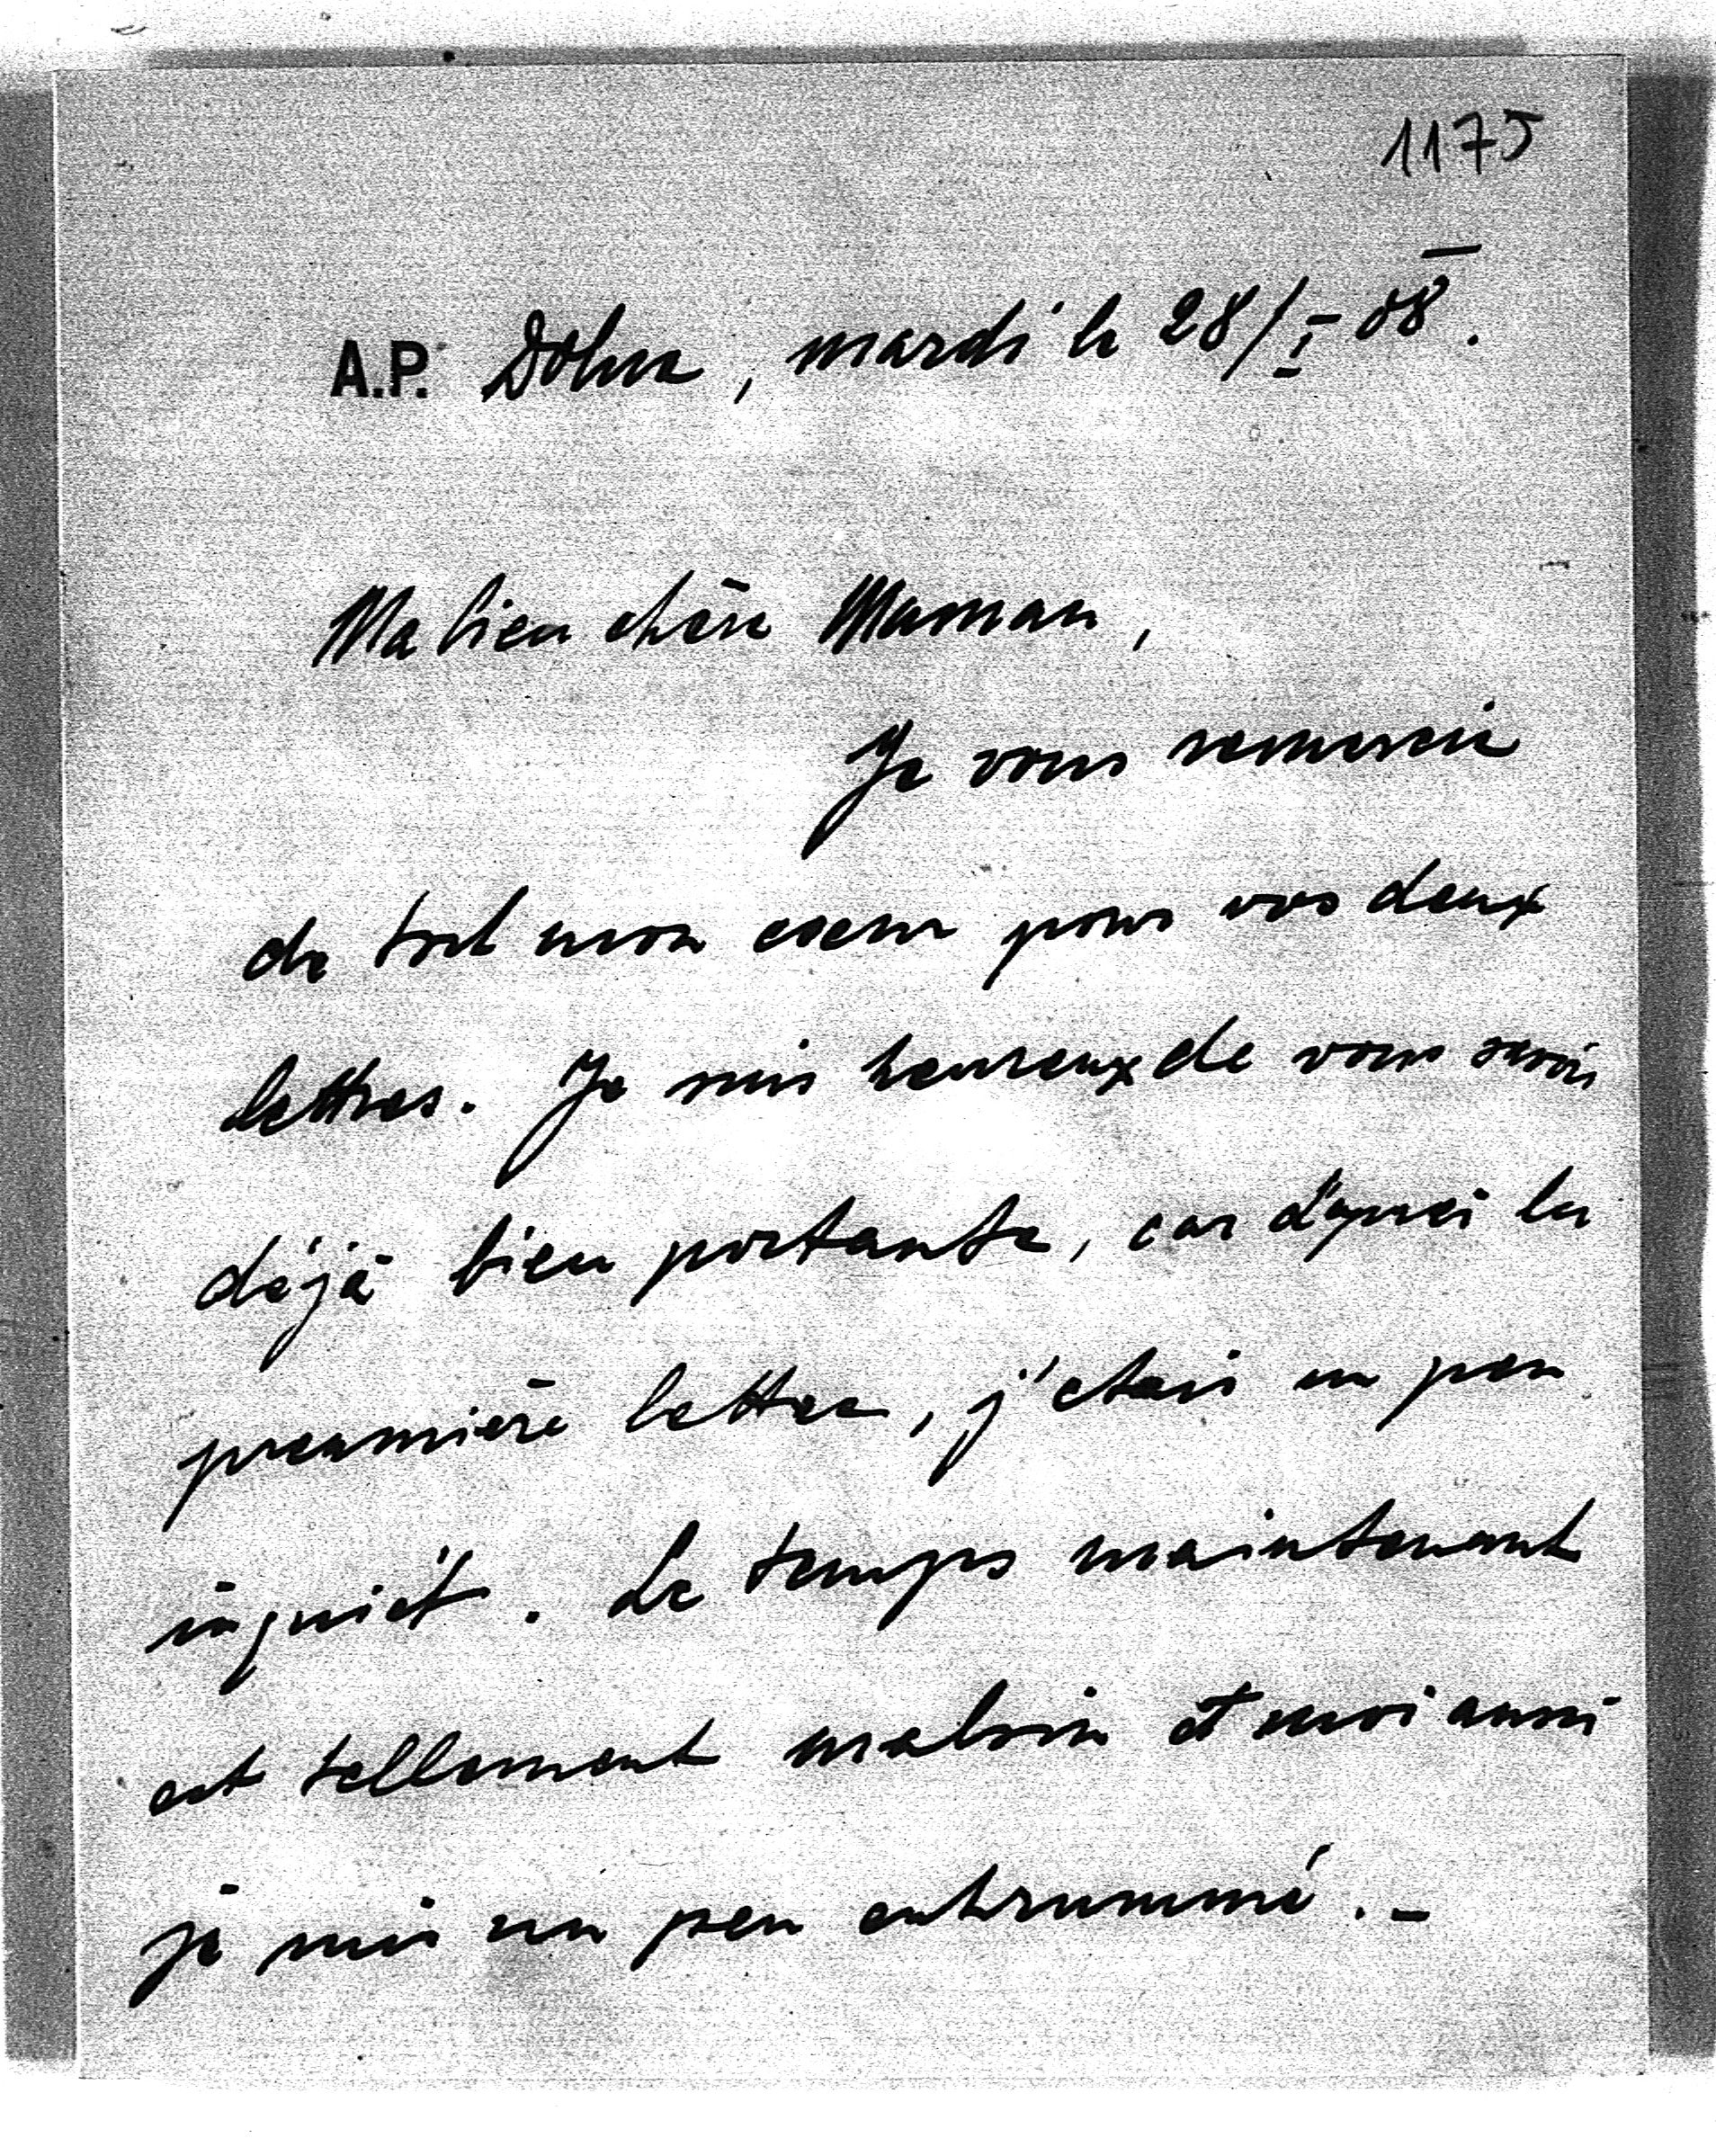 1175
A.P. Dolna, mardi le 28/I-08.
Ma bien chère Maman,
Je vous remercie
de tout mon coeur pour vos deux
lettres. Je suis heureux de vous savoir
déjà bien portante, car d'après la
preamière lettre, j'étais un peu
inquiét. Le temps maintenant
est tellement malsin et moi aussi
je suis un peu enhrummé.-